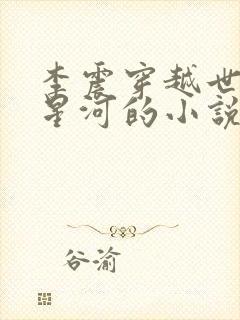 李震穿越世
星河的小說
谷渝